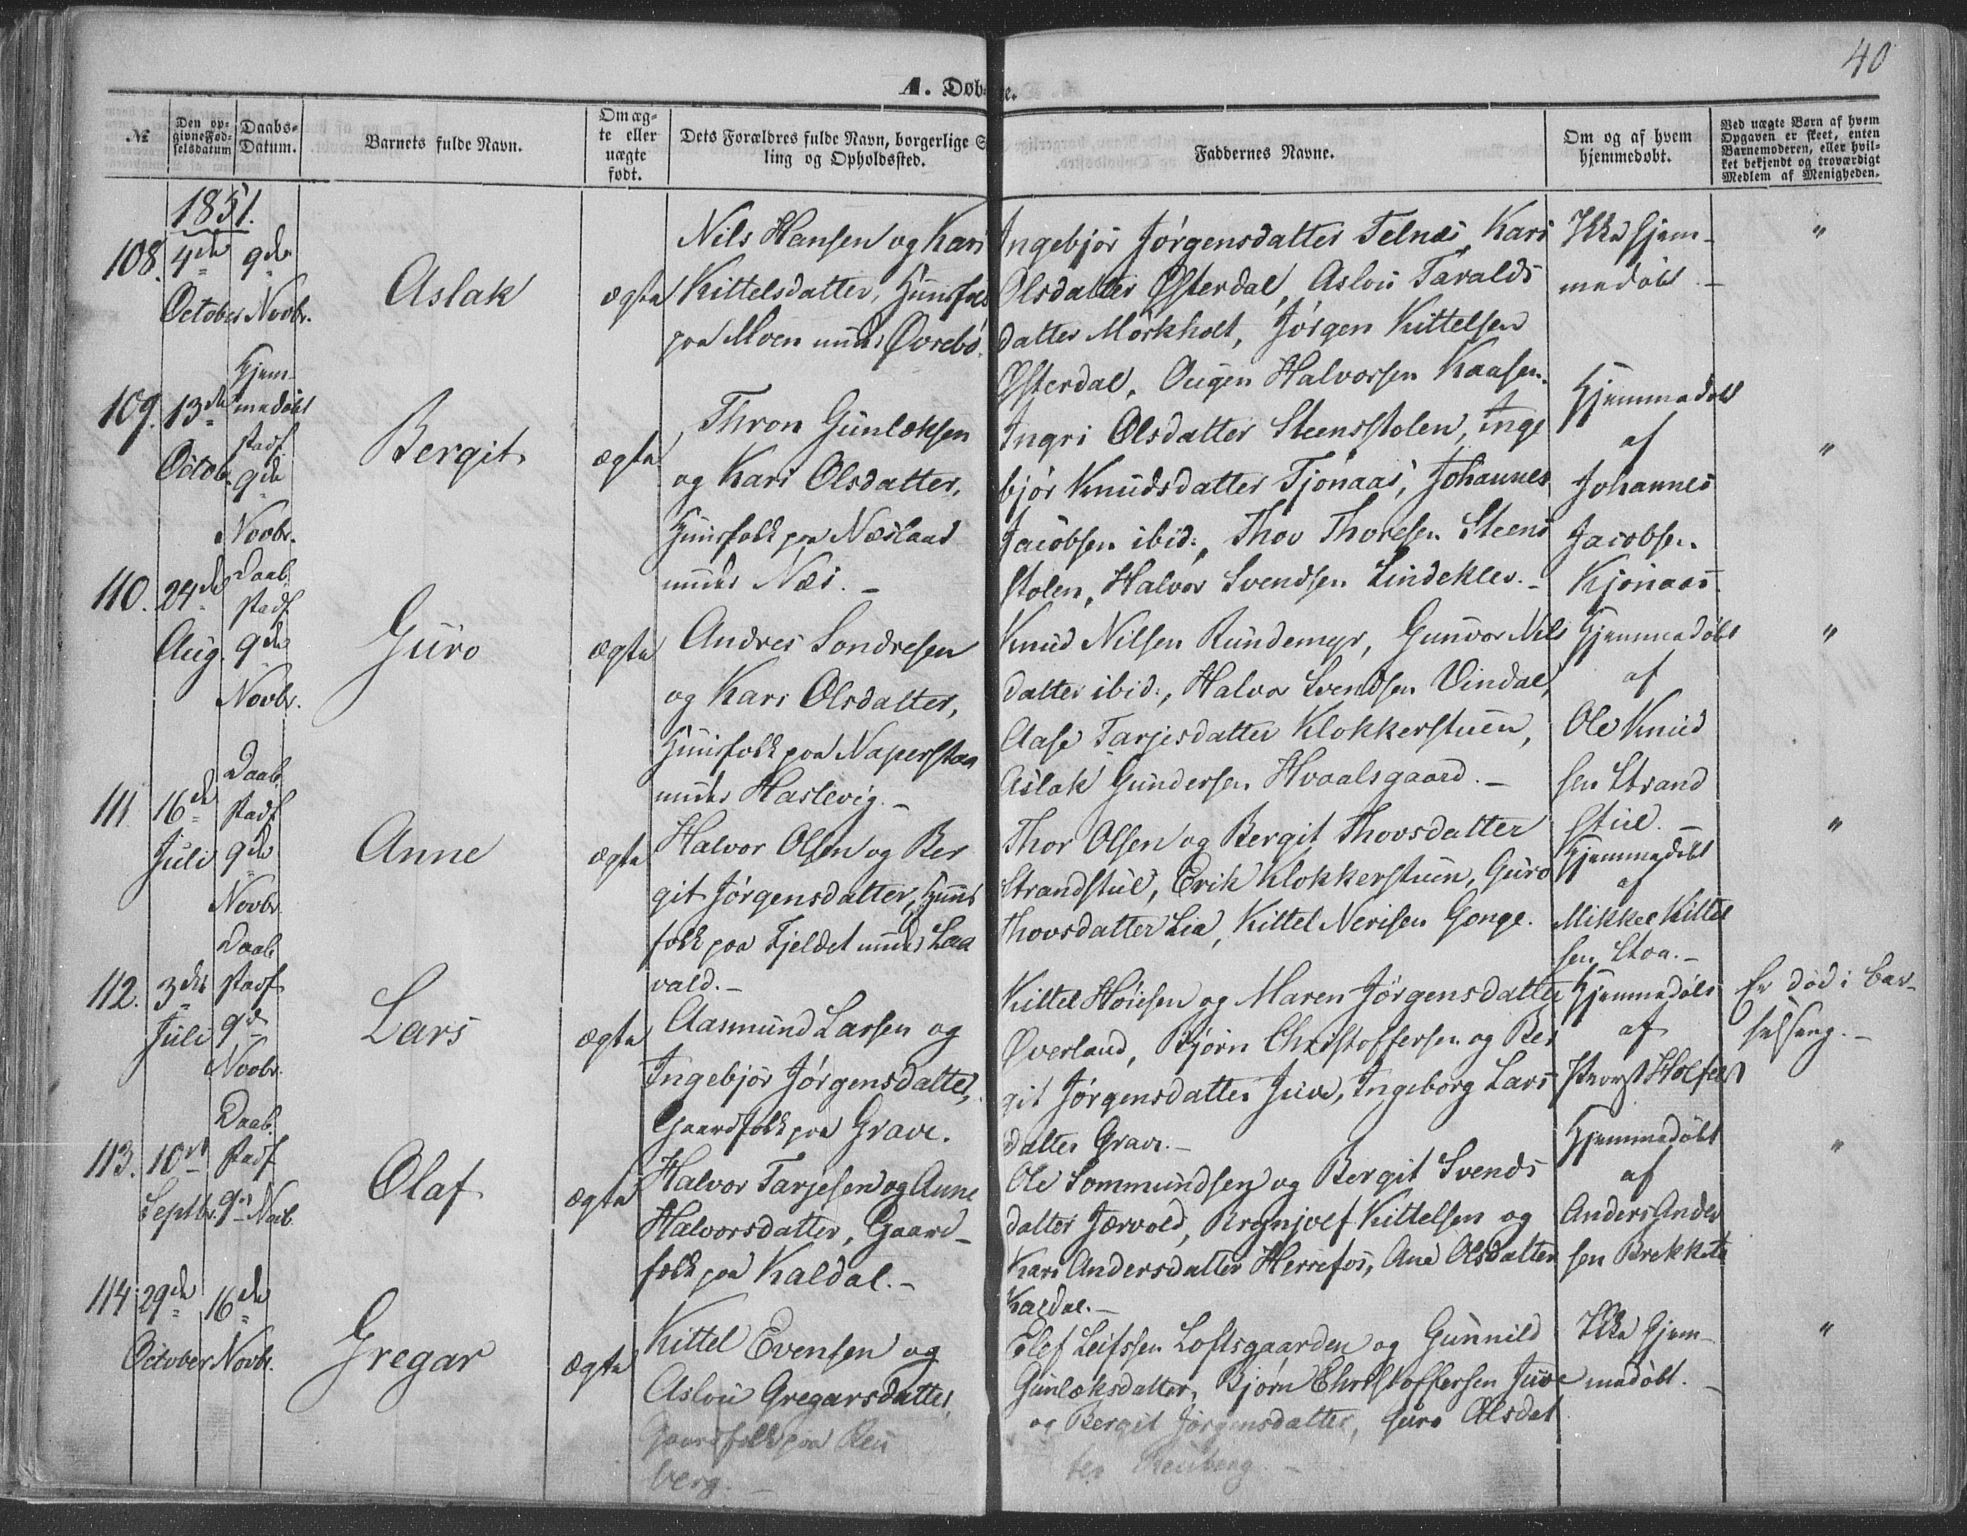 40
A. Døbte.
№
Den op-
givne Fød-
selsdatum
Daabs-
Datum.
Barnets fulde Navn.
Om æg-
te eller
uægte
født.
Dets Forældres fulde Navn, borgerlige S
ling og Opholdsted.
Faddernes Navne.
Om og af hvem
hjemmedøbt.
Ved uægte Børn af hvem
Opgaven er skeet, enten
Barnemoderen, eller hvil-
ket bekjendt og troværdigt
Medlem af Menigheden.
1851.
108. 4de
October
9de
Novbr.
Aslak
ægte
Nils Hansen og Kari
Kittelsdatter, Huusfolk
paa Moen under Øvrebø.
Ingebjør Jørgensdatter Telnes, Kari
Olsdatter Østerdal, Aslou Taralds
datter Mørkholt, Jørgen Kittelsen
Østerdal, Augen Halvorsen Kaasen.
Ikke hjem-
medøbt. -
"
109. 13de
Octob.
Hjem-
medøbt
stadf.
9de
Novbr.
Bergit
ægte
Thron Gunleksen
og Kari Olsdatter,
Huusfolk paa Næslaad
under Næs. -
Ingri Olsdatter Steensstolen, Inge
bjør Knudsdatter Tjønaas, Johannes
Jacobsen ibid:, Thov Thovesen Steens
stolen, Halvor Svendsen Lindeklev. -
Hjemmedøbt
af
Johannes
Jacobsen
Kjønaas.
"
110. 24de
Aug.
Daab.
stadf.
9de
Novbr.
Guro
ægte
Andres Sondresen
og Kari Olsdatter,
Huusfolk paa Naperstaa
under Haslevig. -
Knud Nilsen Rundemyr, Gunvor Nils
datter ibid:, Halvor Svendsen Vindal,
Aase Tarjesdatter Klokkerstuen,
Aslak Gundersen Hvaalsgaard. -
Hjemmedøbt
af
Ole Knud
sen Strand
stul. -
"
111. 16de
Juli
Daab.
stadf
9de
Novbr.
Anne
ægte
Halvor Olsen og Ber
git Jørgensdatter, Huus
folk paa Fjeldet under Laa
vald. -
Thor Olsen og Bergit Thovsdatter
Strandstul, Erik Klokkerstuen, Guro
Thovsdatter Lia, Kittel Nerisen Gonge.
Hjemmedøbt
af
Mikkel Kittel
sen Stoa. -
"
112. 3die
Juli
Daab.
stadf
9de
Novbr.
Lars
ægte
Aasmund Larsen og
Ingebjør Jørgensdatter,
Gaardfolk paa Grave.
Kittel Høiesen og Maren Jørgensdatter
Øverland, Bjørn Christoffersen og Ber
git Jørgensdatter Juve, Ingeborg Lars
datter Grave. -
Hjemmedøbt
af
Provst Holfeldt
Er død i bar-
selseng. -
113. 10de
Septbr.
Daab.
stadf
9de Novb.
Olaf
ægte
Halvor Tarjesen og Anne
Halvorsdatter, Gaard-
folk paa Kaldal. -
Ole Sommundsen og Bergit Svends
datter Jærvold, Brynjulf Kittelsen og
Kari Andersdatter Herrefos, Ane Olsdatter
Kaldal. -
Hjemmedøbt
af
Anders Ander
sen Brekkete
"
114. 29de
October
16de
Novbr.
Gregar
ægte
Kittel Evensen og
Aslou Gregarsdatter,
Gaardfolk paa Reis
berg. -
Elef Leifssen Loftsgaarden og Gunnild
Gunleksdatter, Bjørn Christoffersen Juve
og Bergit Jørgensdatter, Guro Olsdat
ter Reisberg. -
Ikke hjem-
medøbt. -
"